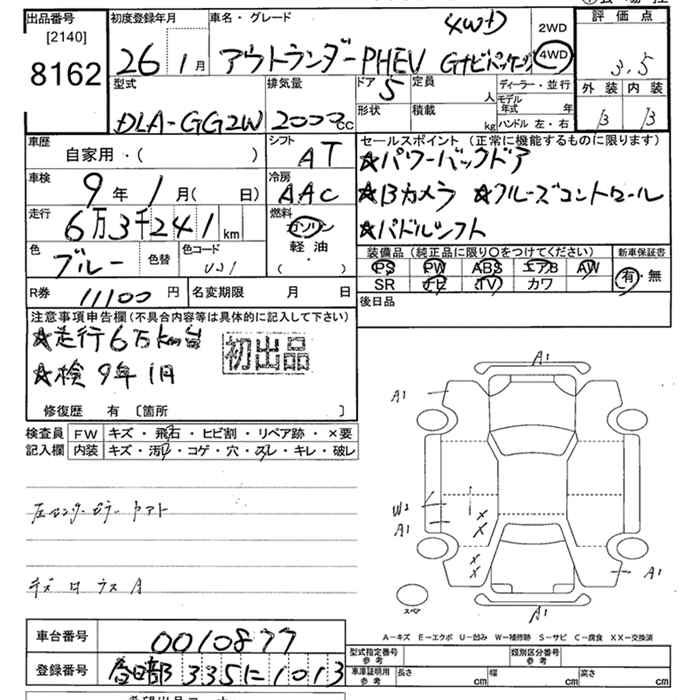 出品番号 初度登録年月 車名・グレード 4WD 2WD 評価点
[2140] 8162 26年1月 アウトランダーPHEV Gナビパッケージ 4WD 3.5
型式 排気量 ドア 5 定員 人 ディーラー・並行 外装 内装
DLA-GG2W 2000cc 形状 積載 kg モデル年式 年 ハンドル 左・右 B B
車歴 自家用・( ) シフト AT セールスポイント (正常に機能するものに限ります)
☆パワーバックドア
車検 9年1月( 日) 冷房 AAC ☆Bカメラ ☆クルーズコントロール
走行 6万3千241km 燃料 ガソリン 軽油 ( ・ ) ☆パドルシフト
色 ブルー 色替 色コード 装備品 (純正品に限り○をつけてください) 新車保証書
PS PW ABS エアB AW 有・無
SR ナビ TV カワ
R券 11100円 名変期限 月 日 後日品
注意事項申告欄(不具合内容等は具体的に記入して下さい)
☆走行6万km台 初出品
☆検 9年1月
修復歴 有 〔箇所 〕
検査員 FW キズ・飛石・ヒビ割・リペア跡・×要
記入欄 内装 キズ・汚レ・コゲ・穴・スレ・キレ・破レ
A1
A1
W2
A1
A1
A1
スペア
A-キズ E-エクボ U-凹み W-補修跡 S-サビ C-腐食 XX-交換済
車台番号 0010877 型式指定番号 参考 類別区分番号 参考
登録番号 春日部 335に1013 車庫証明用 参考 長さ 幅 高さ